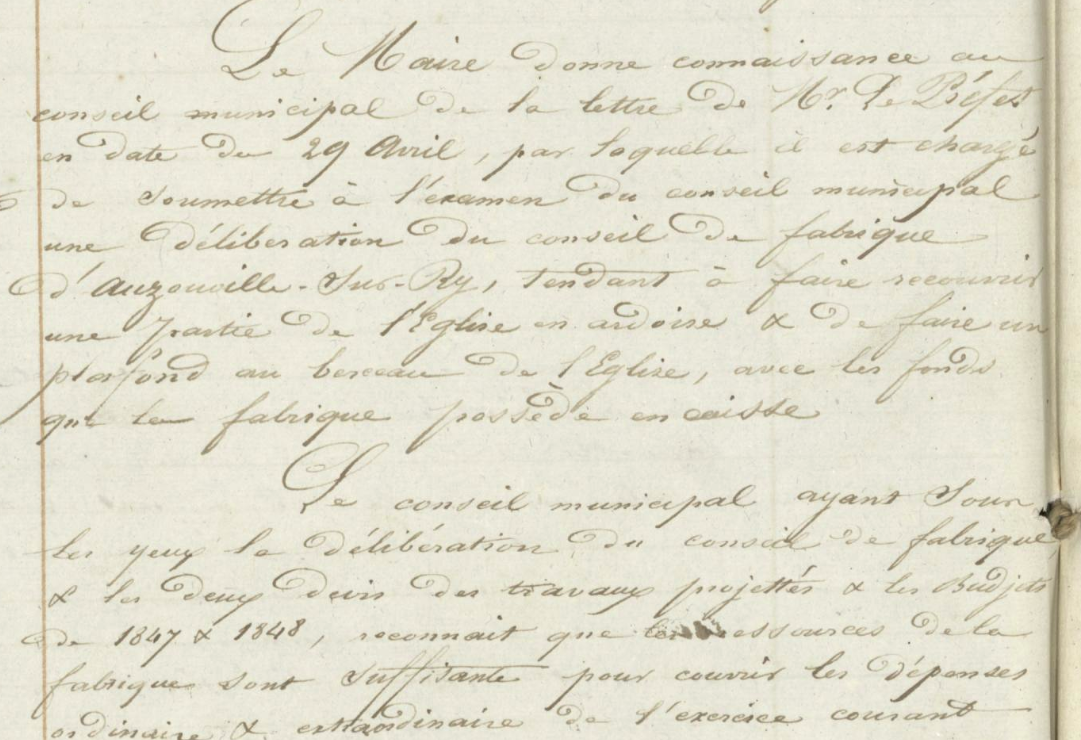 Le Maire donne connaissance au
conseil municipal de la lettre de Mr. le Préfet
en date du 29 Avril, par laquelle il est chargé
de soumettre à l'examen du conseil municipal
une délibération du conseil de fabrique
d'Auzouville-Sur-Ry, tendant à faire recouvrir
une partie de l'Eglise en ardoise & de faire un
plafond au berceau de l'Eglise, avec les fonds
que la fabrique possède en caisse
Le conseil municipal ayant Sous
les yeux la délibération du conseil de fabrique
& les deux devis des travaux projettés & les Budjets
de 1847 & 1848, reconnait que les ressources de la
fabrique sont suffisante pour couvrir les dépenses
ordinaire & extraordinaire de l'exercice courant